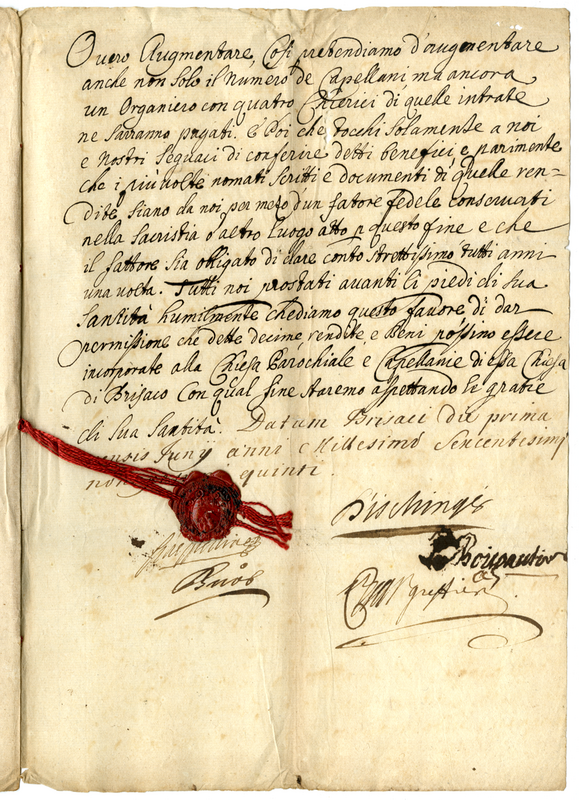 Overo Augmentare, Cosi pretendiamo d'augmentare
anche non solo il Numero de Capellani ma ancora
un Organiero con quatro Chierici di quelle intrate
ne Sarranno pagati. E Poi che tocchi solamente a noi
e Nostri Seguaci di conferire detti benefici e parimente
che i più volte nomati Scritti e documenti di quelle ren=
dite, siano da noi per mezo d'un fatore fedele conservati
nella Sacristia ò altro luogo atto p questo fine e che
il fattore Sia obligato di dare conto strettissimo tutti anni
una volta. Tutti noi prostati avanti li piedi di Sua
Santità humilmente chediamo questo favore di dar
permissione che dette decime, rendite, e Beni possino essere
incorporate alla Chiesa Parochiale e Capellanie di essa Chiesa
di Brisaco Con qual fine staremo aspettando le gratie
di Sua Santità. Datum Brisaci die prima
mensis Juny anni Millesimo Sexcentesimi
quinti.
Pischinger
Buob